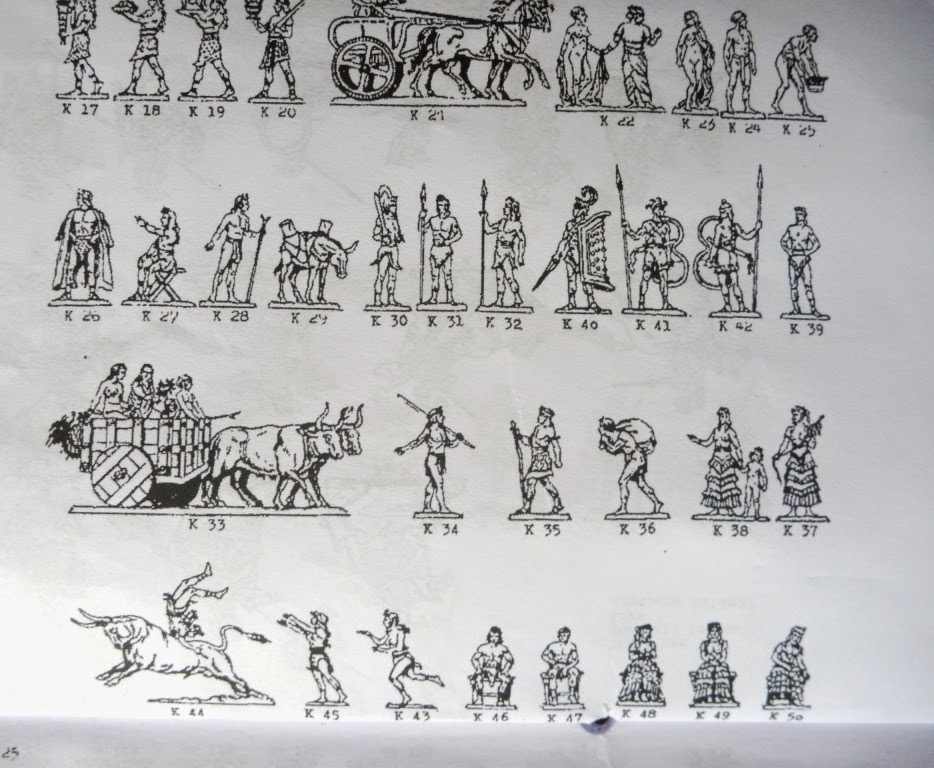 K 17 K 18 K 19 K 20 K 21 K 22 K 23 K 24 K 25
K 26 K 27 K 28 K 29 K 30 K 31 K 32 K 40 K 41 K 42 K 39
K 33 K 34 K 35 K 36 K 38 K 37
K 44 K 45 K 43 K 46 K 47 K 48 K 49 K 50
25